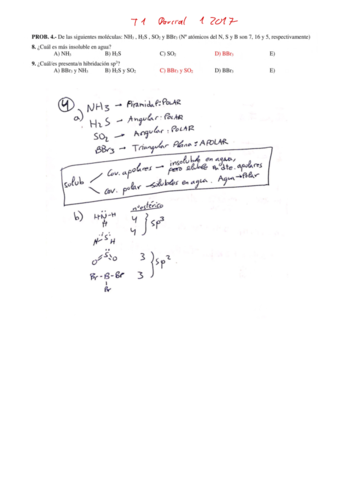 T1 Parcial 1 2017
PROB. 4.- De las siguientes moléculas: NH₃ , H₂S , SO₂ y BBr₃ (Nº atómicos del N, S y B son 7, 16 y 5, respectivamente)
8. ¿Cuál es más insoluble en agua?
A) NH₃ B) H₂S C) SO₂ D) BBr₃ E)
9. ¿Cuál/es presenta/n hibridación sp²?
A) BBr₃ y NH₃ B) H₂S y SO₂ C) BBr₃ y SO₂ D) BBr₃ E)
4 NH₃ → Piramidal: POLAR
a) H₂S → Angular: POLAR
SO₂ → Angular: POLAR
BBr₃ → Triangular Plana: APOLAR
Solub Cov. apolares → insolubles en agua,
pero solubles en dtes. apolares
Cov. polar → solubles en agua. Agua → Polar
b) nº estérico
H-N-H 4
H
sp³
S 4
H H
O S O 3
sp²
Br-B-Br 3
Br